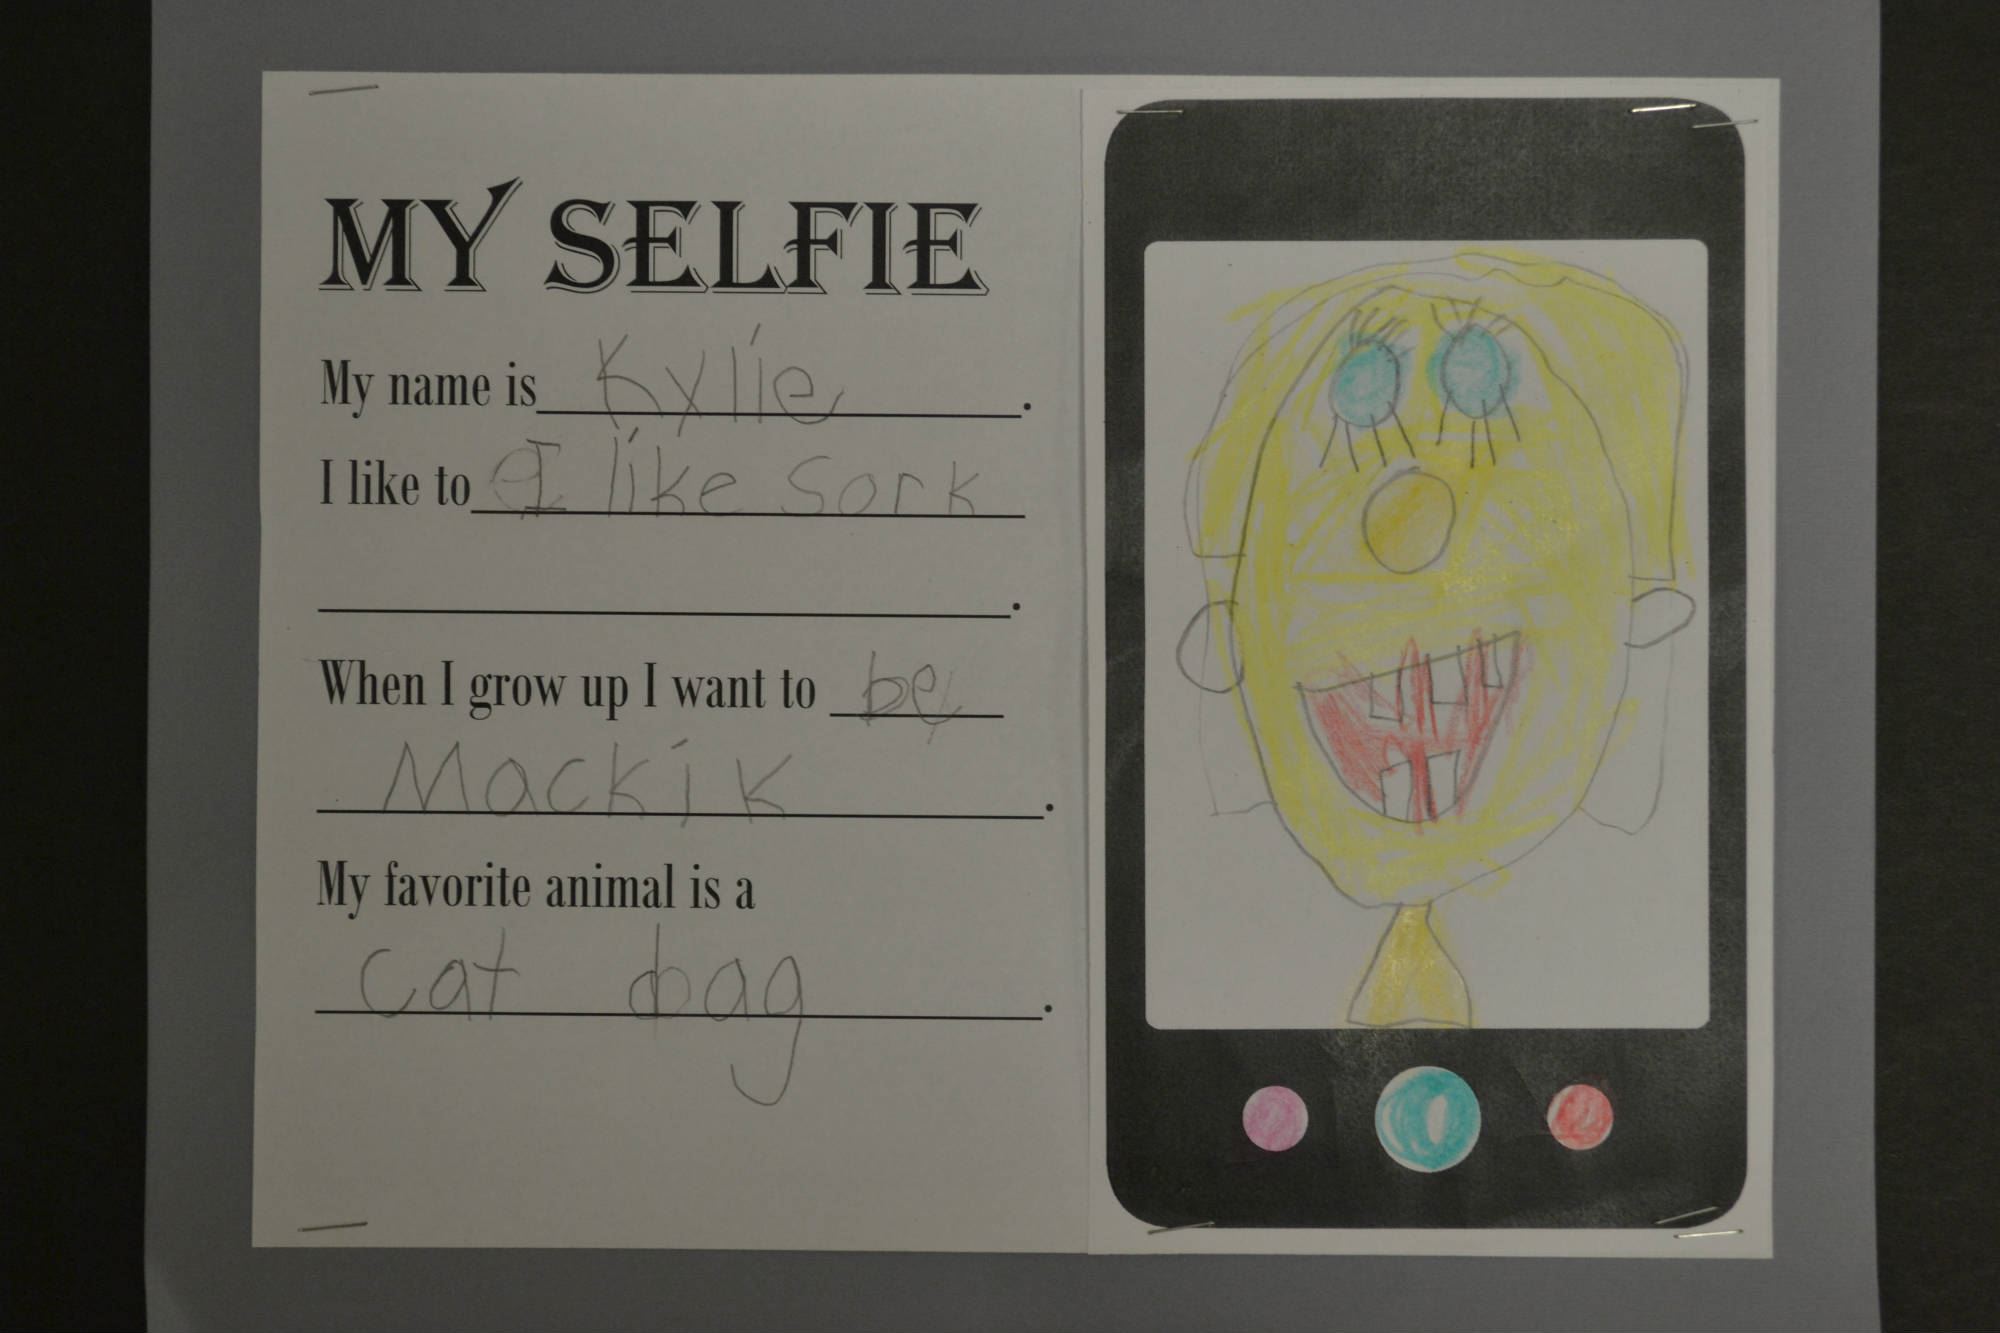 MY SELFIE
My name is Kylie.
I like to I like sork
.
When I grow up I want to be
Mackik.
My favorite animal is a
cat dag.